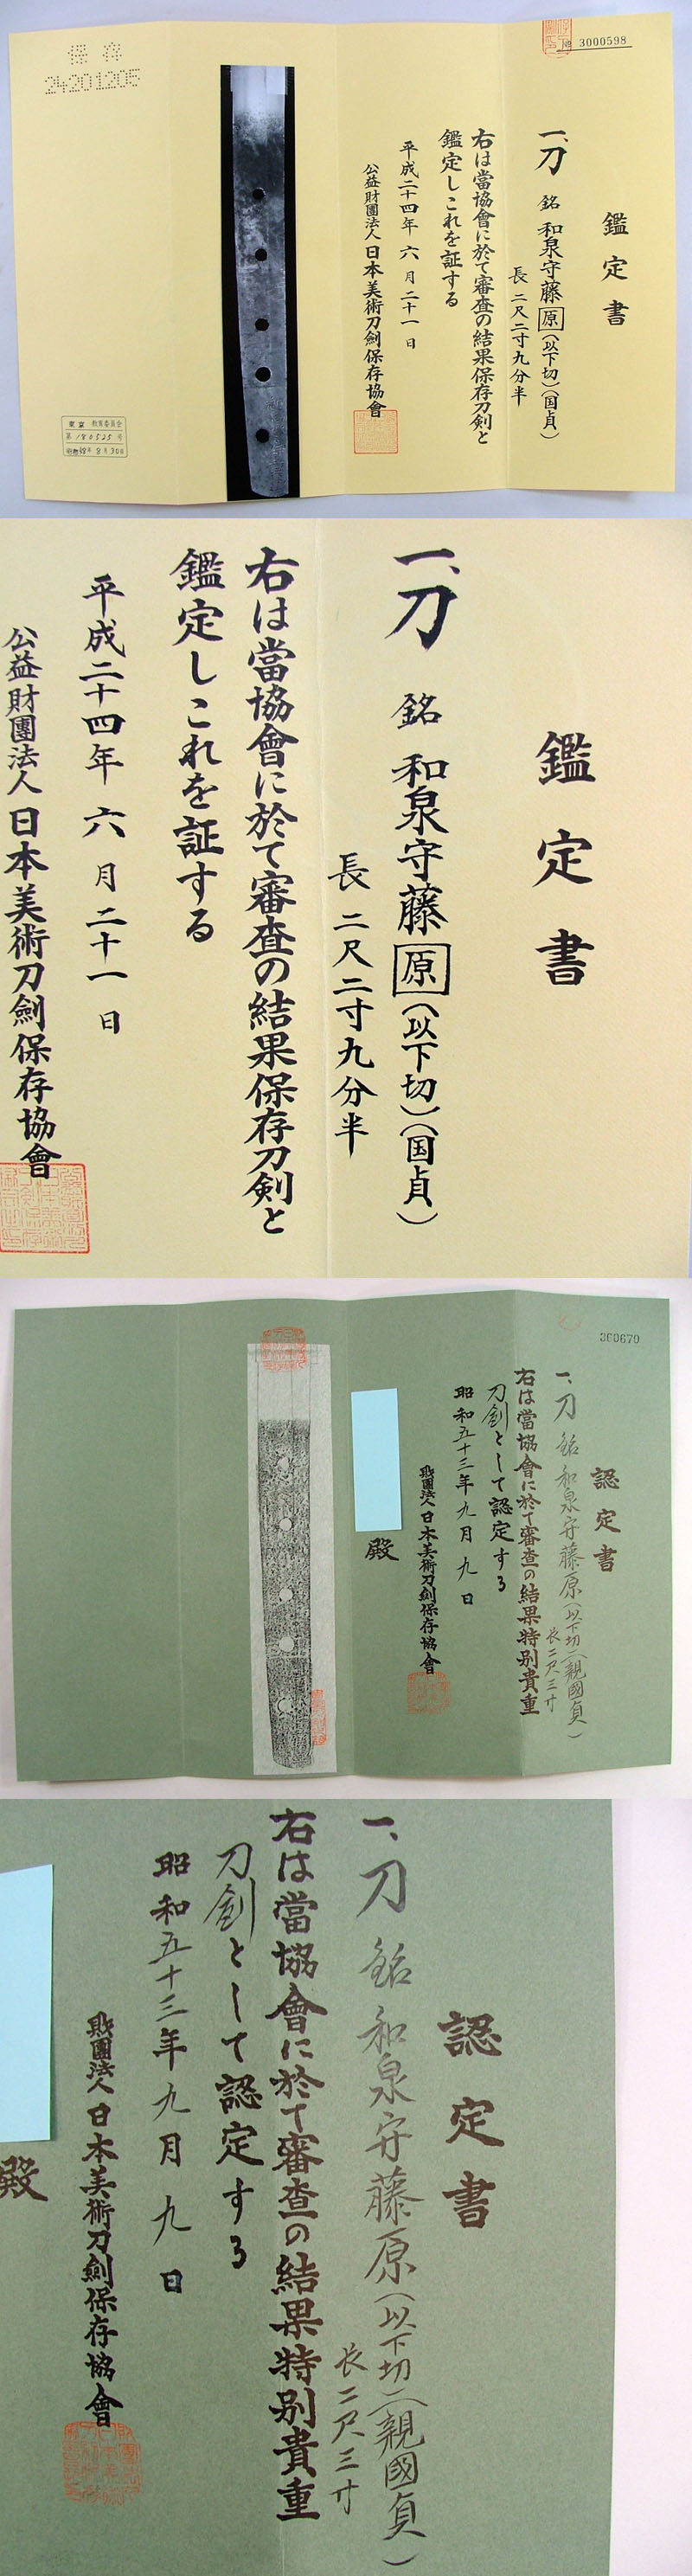 保存
24201205
№ 3000598
鑑定書
一、刀 銘 和泉守藤原(以下切)(国貞)
長 二尺二寸九分半
右は當協會に於て審査の結果保存刀剣と
鑑定しこれを証する
平成二十四年 六月 二十一日
公益財團法人 日本美術刀劍保存協會
東京 教育委員会
第180525号
昭和48年8月30日
鑑定書
一、刀 銘 和泉守藤原(以下切)(国貞)
長 二尺二寸九分半
右は當協會に於て審査の結果保存刀剣と
鑑定しこれを証する
平成二十四年 六月 二十一日
公益財團法人 日本美術刀劍保存協會
360670
認定書
一、刀 銘 和泉守藤原(以下切)(親國貞)
長二尺三寸
右は當協會に於て審査の結果特別貴重
刀劍として認定する
昭和五十三年九月九日
財團法人 日本美術刀劍保存協會
殿
認定書
一、刀 銘 和泉守藤原(以下切)(親國貞)
長二尺三寸
右は當協會に於て審査の結果特別貴重
刀劍として認定する
昭和五十三年九月九日
財團法人 日本美術刀劍保存協會
殿